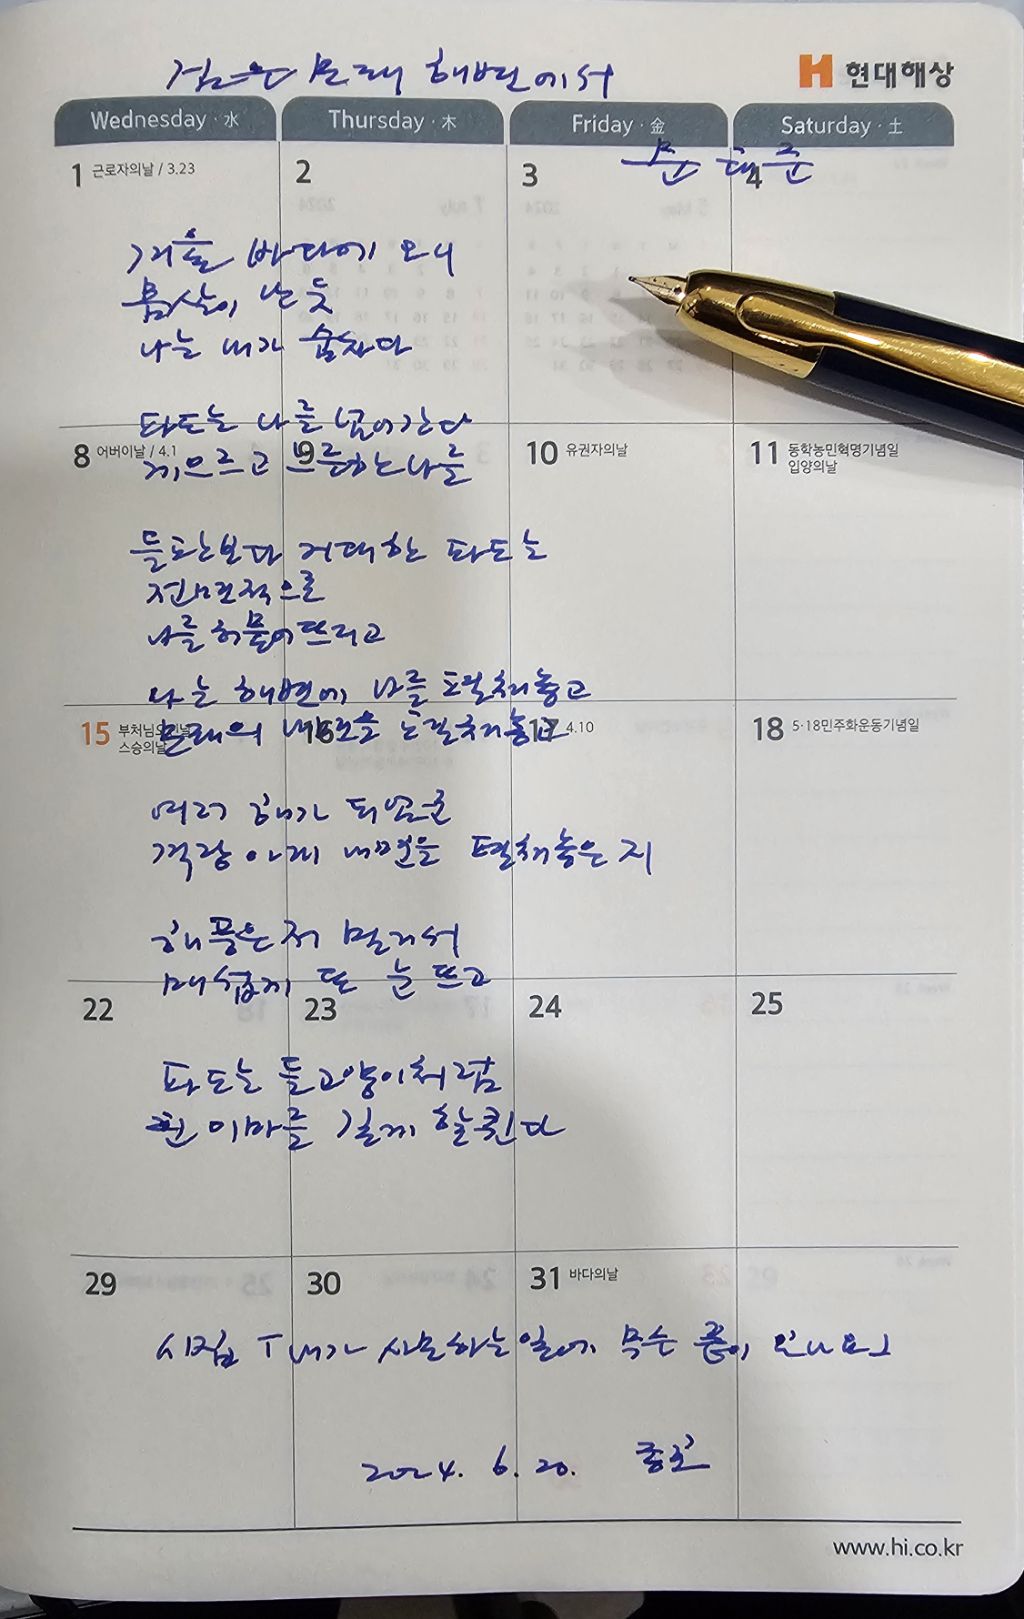 검은 모래 해변에서
현대해상
Wednesday · 水 Thursday · 木 Friday · 金 Saturday · 土
문태준
1 근로자의날 / 3.23 2 3 4
겨울 바다에 오니
몸살이 난 듯
나는 내가 숨차다
파도는 나를 넘어간다
8 어버이날 / 4.1 9 10 유권자의날 11 동학농민혁명기념일
입양의날
게으르고 느른한 나를
들판보다 거대한 파도는
전면적으로
나를 허물어뜨리고
나는 해변에 나를 펼쳐놓고
15 부처님오신날 16 17 4.10 18 5·18민주화운동기념일
스승의날
모래의 내면을 펼쳐놓고
여러 해가 되었군
격랑 아래 내면을 펼쳐놓은 지
해풍은 저 멀리서
매섭게 또 눈 뜨고
22 23 24 25
파도는 들고양이처럼
흰 이마를 길게 할퀸다
29 30 31 바다의날
시집 「내가 사모하는 일에 무슨 끝이 있나요」
2024. 6. 20.
www.hi.co.kr